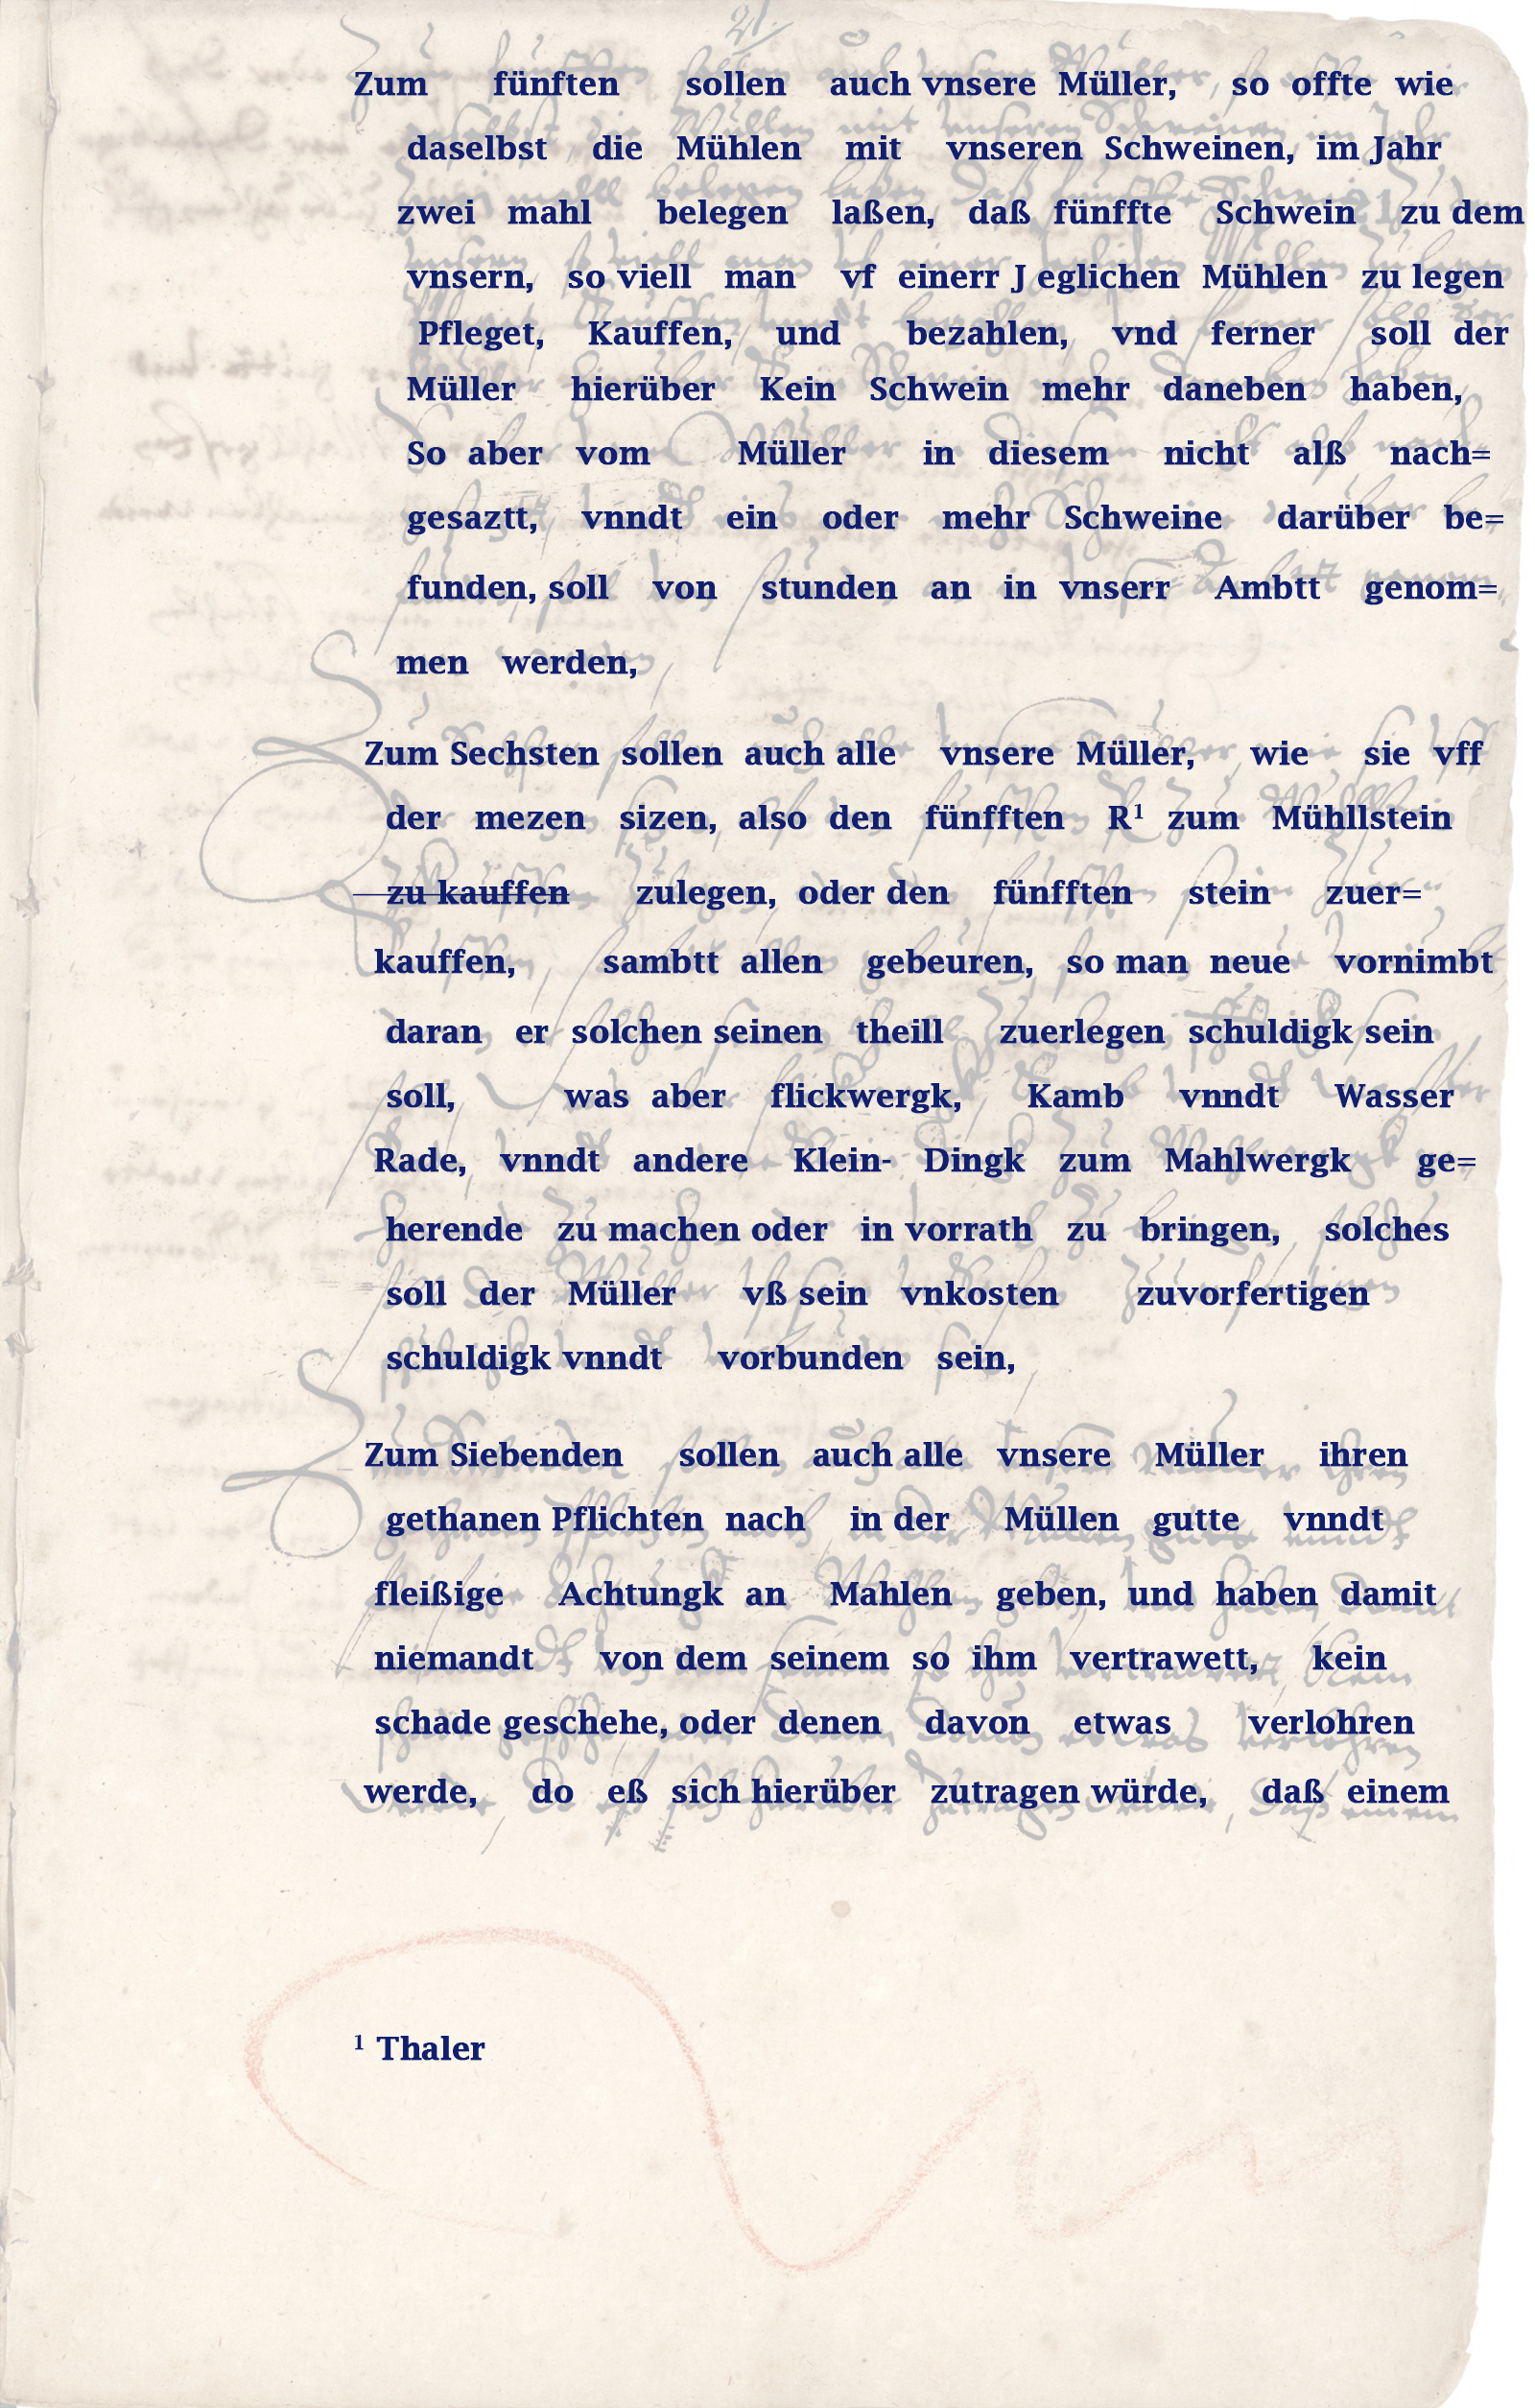 21.
Zum fünften sollen auch vnsere Müller, so offte wie
daselbst die Mühlen mit vnseren Schweinen, im Jahr
zwei mahl belegen laßen, daß fünffte Schwein zu dem
vnsern, so viell man vf einerr J eglichen Mühlen zu legen
Pfleget, Kauffen, und bezahlen, vnd ferner soll der
Müller hierüber Kein Schwein mehr daneben haben,
So aber vom Müller in diesem nicht alß nach=
gesaztt, vnndt ein oder mehr Schweine darüber be=
funden, soll von stunden an in vnserr Ambtt genom=
men werden,
Zum Sechsten sollen auch alle vnsere Müller, wie sie vff
der mezen sizen, also den fünfften R¹ zum Mühllstein
zu kauffen zulegen, oder den fünfften stein zuer=
kauffen, sambtt allen gebeuren, so man neue vornimbt
daran er solchen seinen theill zuerlegen schuldigk sein
soll, was aber flickwergk, Kamb vnndt Wasser
Rade, vnndt andere Klein- Dingk zum Mahlwergk ge=
herende zu machen oder in vorrath zu bringen, solches
soll der Müller vß sein vnkosten zuvorfertigen
schuldigk vnndt vorbunden sein,
Zum Siebenden sollen auch alle vnsere Müller ihren
gethanen Pflichten nach in der Müllen gutte vnndt
fleißige Achtungk an Mahlen geben, und haben damit
niemandt von dem seinem so ihm vertrawett, kein
schade geschehe, oder denen davon etwas verlohren
werde, do eß sich hierüber zutragen würde, daß einem
¹ Thaler